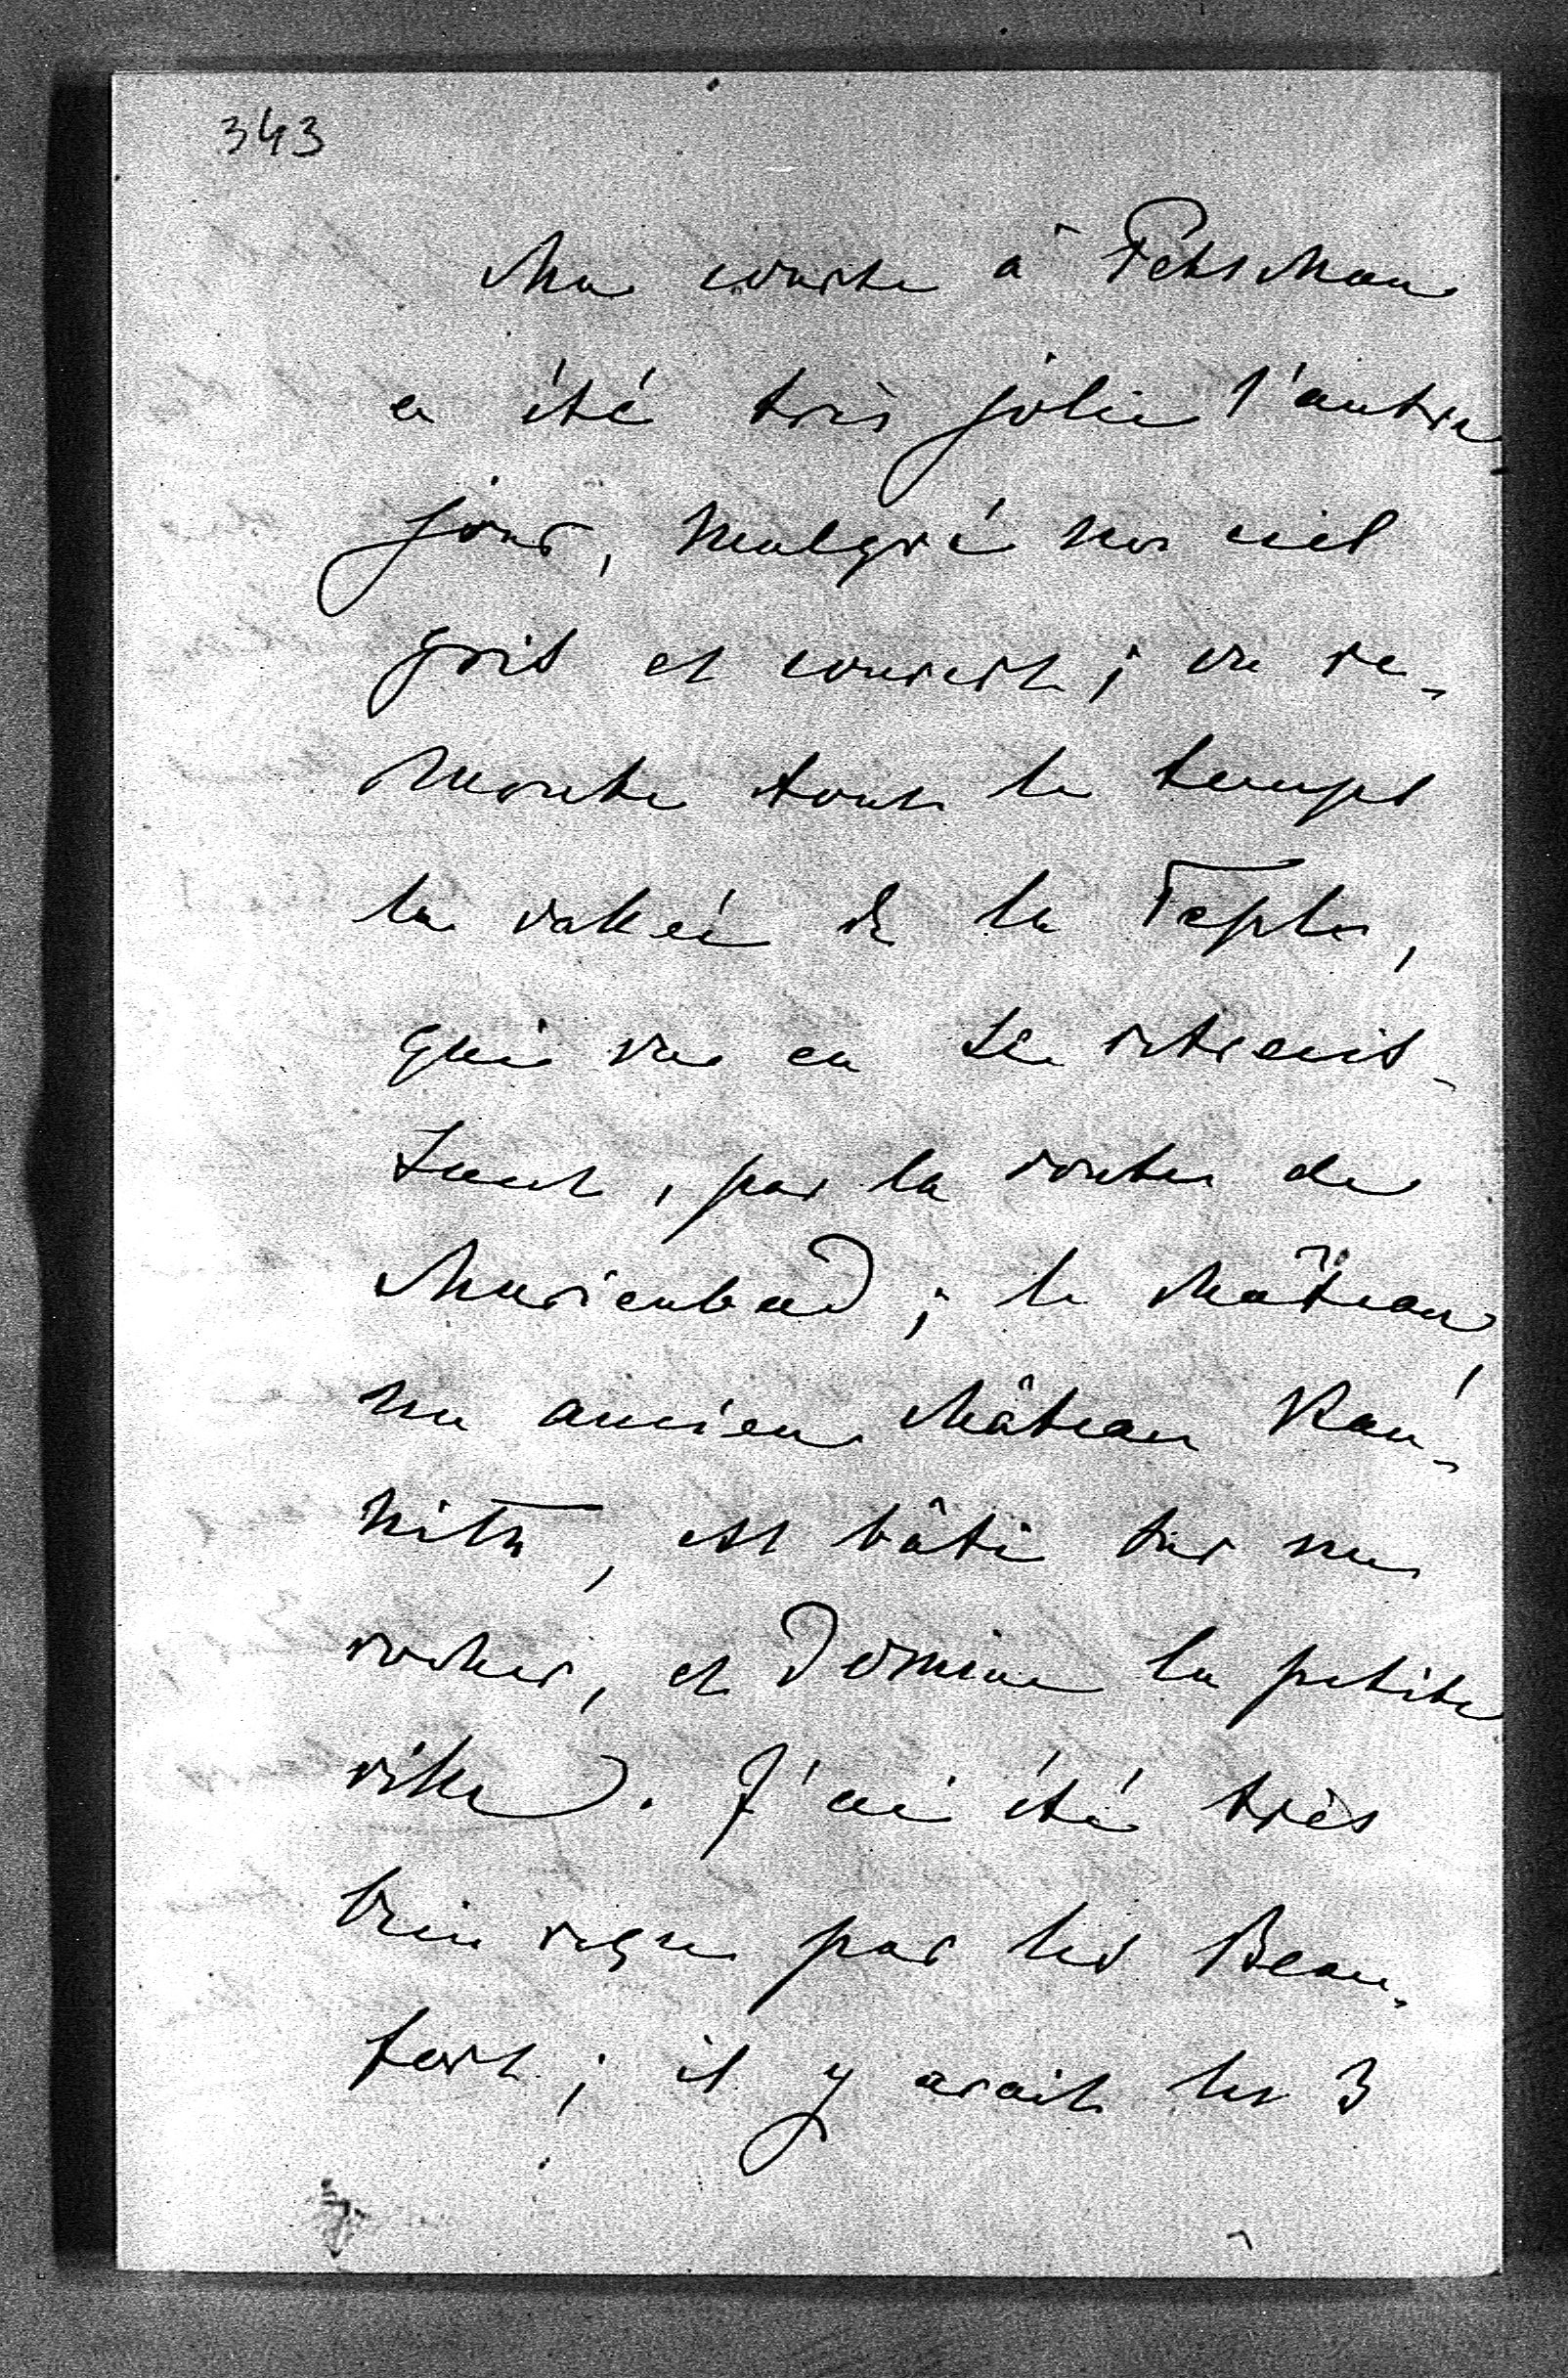 343
Ma course à Petschau
a été très jolie l'autre
jour, malgré un ciel
gris et couvert ; on re-
monte tout le temps
la vallée de la Tepler,
qui va en se rétrécis-
sant, par la route de
Marienbad ; le château,
un ancien château Kau-
nitz, est bâti sur un
rocher, et domine la petite
ville. J'ai été très
bien reçu par les Beau-
fort ; il y avait les 3